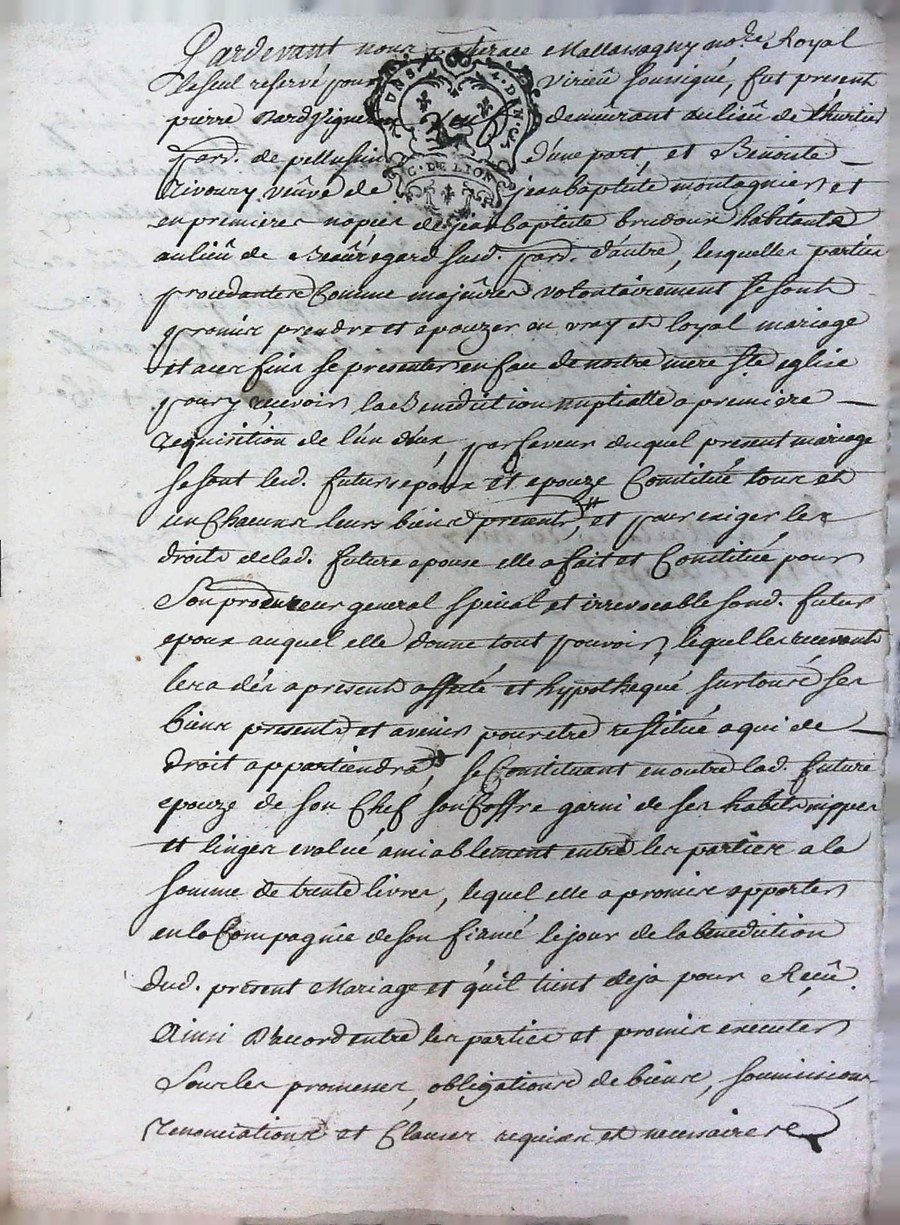 Pardevant nous Mallassagny no.re Royal
le seul reservé pour Virieu soussigné, fut présent
pierre Bard vigneron demeurant au lieu de
par. de pellussin d'une part, et Benoite
veuve de jean baptiste montagnier et
en premieres nopces de jean baptiste brudoux habitante
au lieu de Beauregard susd. par. d'autre, lesquelles parties
procedantes Comme majeures volontairement se sont
promis prendre et epouzer en vray et loyal mariage
et a ces fins se presenter en face de notre mere Ste eglise
pour y recevoir la Benediction nuptialle a premiere
requisition de l'un d'eux, par faveur duquel present mariage
se sont lesd. futurs epoux et epouze Constitué tous et
un Chacuns leurs biens presents, et pour exiger les
droits de lad. future epouse elle a fait et Constitué pour
Son procureur general special et irrevocable sond. futur
epoux auquel elle donne tout pouvoir, lequel les recevant
les a dés a present assuré et hypothequé sur tous ses
biens presents et avenir pour etre restitué a qui de
Droit appartiendra, se Constituant en outre lad. future
epouze de son Chef son Coffre garni de ses habits nippes
et linges evalué amiablement entre les parties a la
somme de trente livres, lequel elle a promis apporter
en la Compagnie de son fiancé le jour de la benediction
dud. present Mariage et qu'il tient deja pour Reçû.
Ainsi D'accord entre les parties et promis executer
Sous les promesses, obligations de biens, soumissions
renonciations et Clauses requises et necessaires
G. DE LION